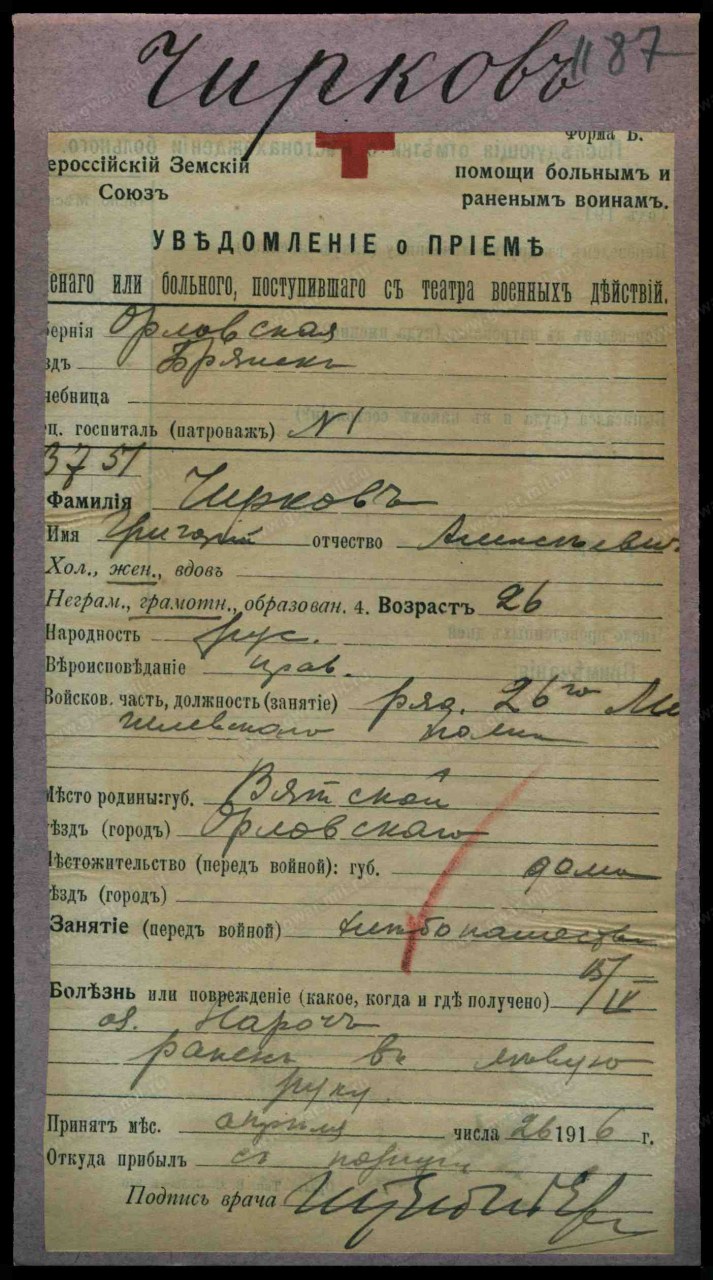 Чирковъ 1187
Форма Б.
ероссійскій Земскій
Союзъ
помощи больнымъ и
раненымъ воинамъ.
УВѢДОМЛЕНІЕ о ПРІЕМѢ
енаго или больного, поступившаго съ театра военныхъ дѣйствій.
бернія Орловская
здъ Брянскъ
чебница
ец. госпиталь (патроважъ) N 1
3751
Фамилія Чирковъ
Имя Григорій отчество Алексѣевич
Хол., жен., вдовъ
Неграм., грамотн., образован. 4. Возрастъ 26
Народность рус.
Вѣроисповѣданіе прав.
Войсков. часть, должность (занятіе) ряд. 26го Мо
гилевского полка
Мѣсто родины: губ. Вятской
ѣздъ (городъ) Орловскаго
Мѣстожительство (передъ войной): губ. дома
ѣздъ (городъ)
Занятіе (передъ войной) хлѣбопашество
Болѣзнь или поврежденіе (какое, когда и гдѣ получено) 15/IV
оз. Нарочъ
раненъ въ лѣвую
руку.
Принятъ мѣс. апрѣля числа 26 1916 г.
Откуда прибылъ съ позиціи
Подпись врача